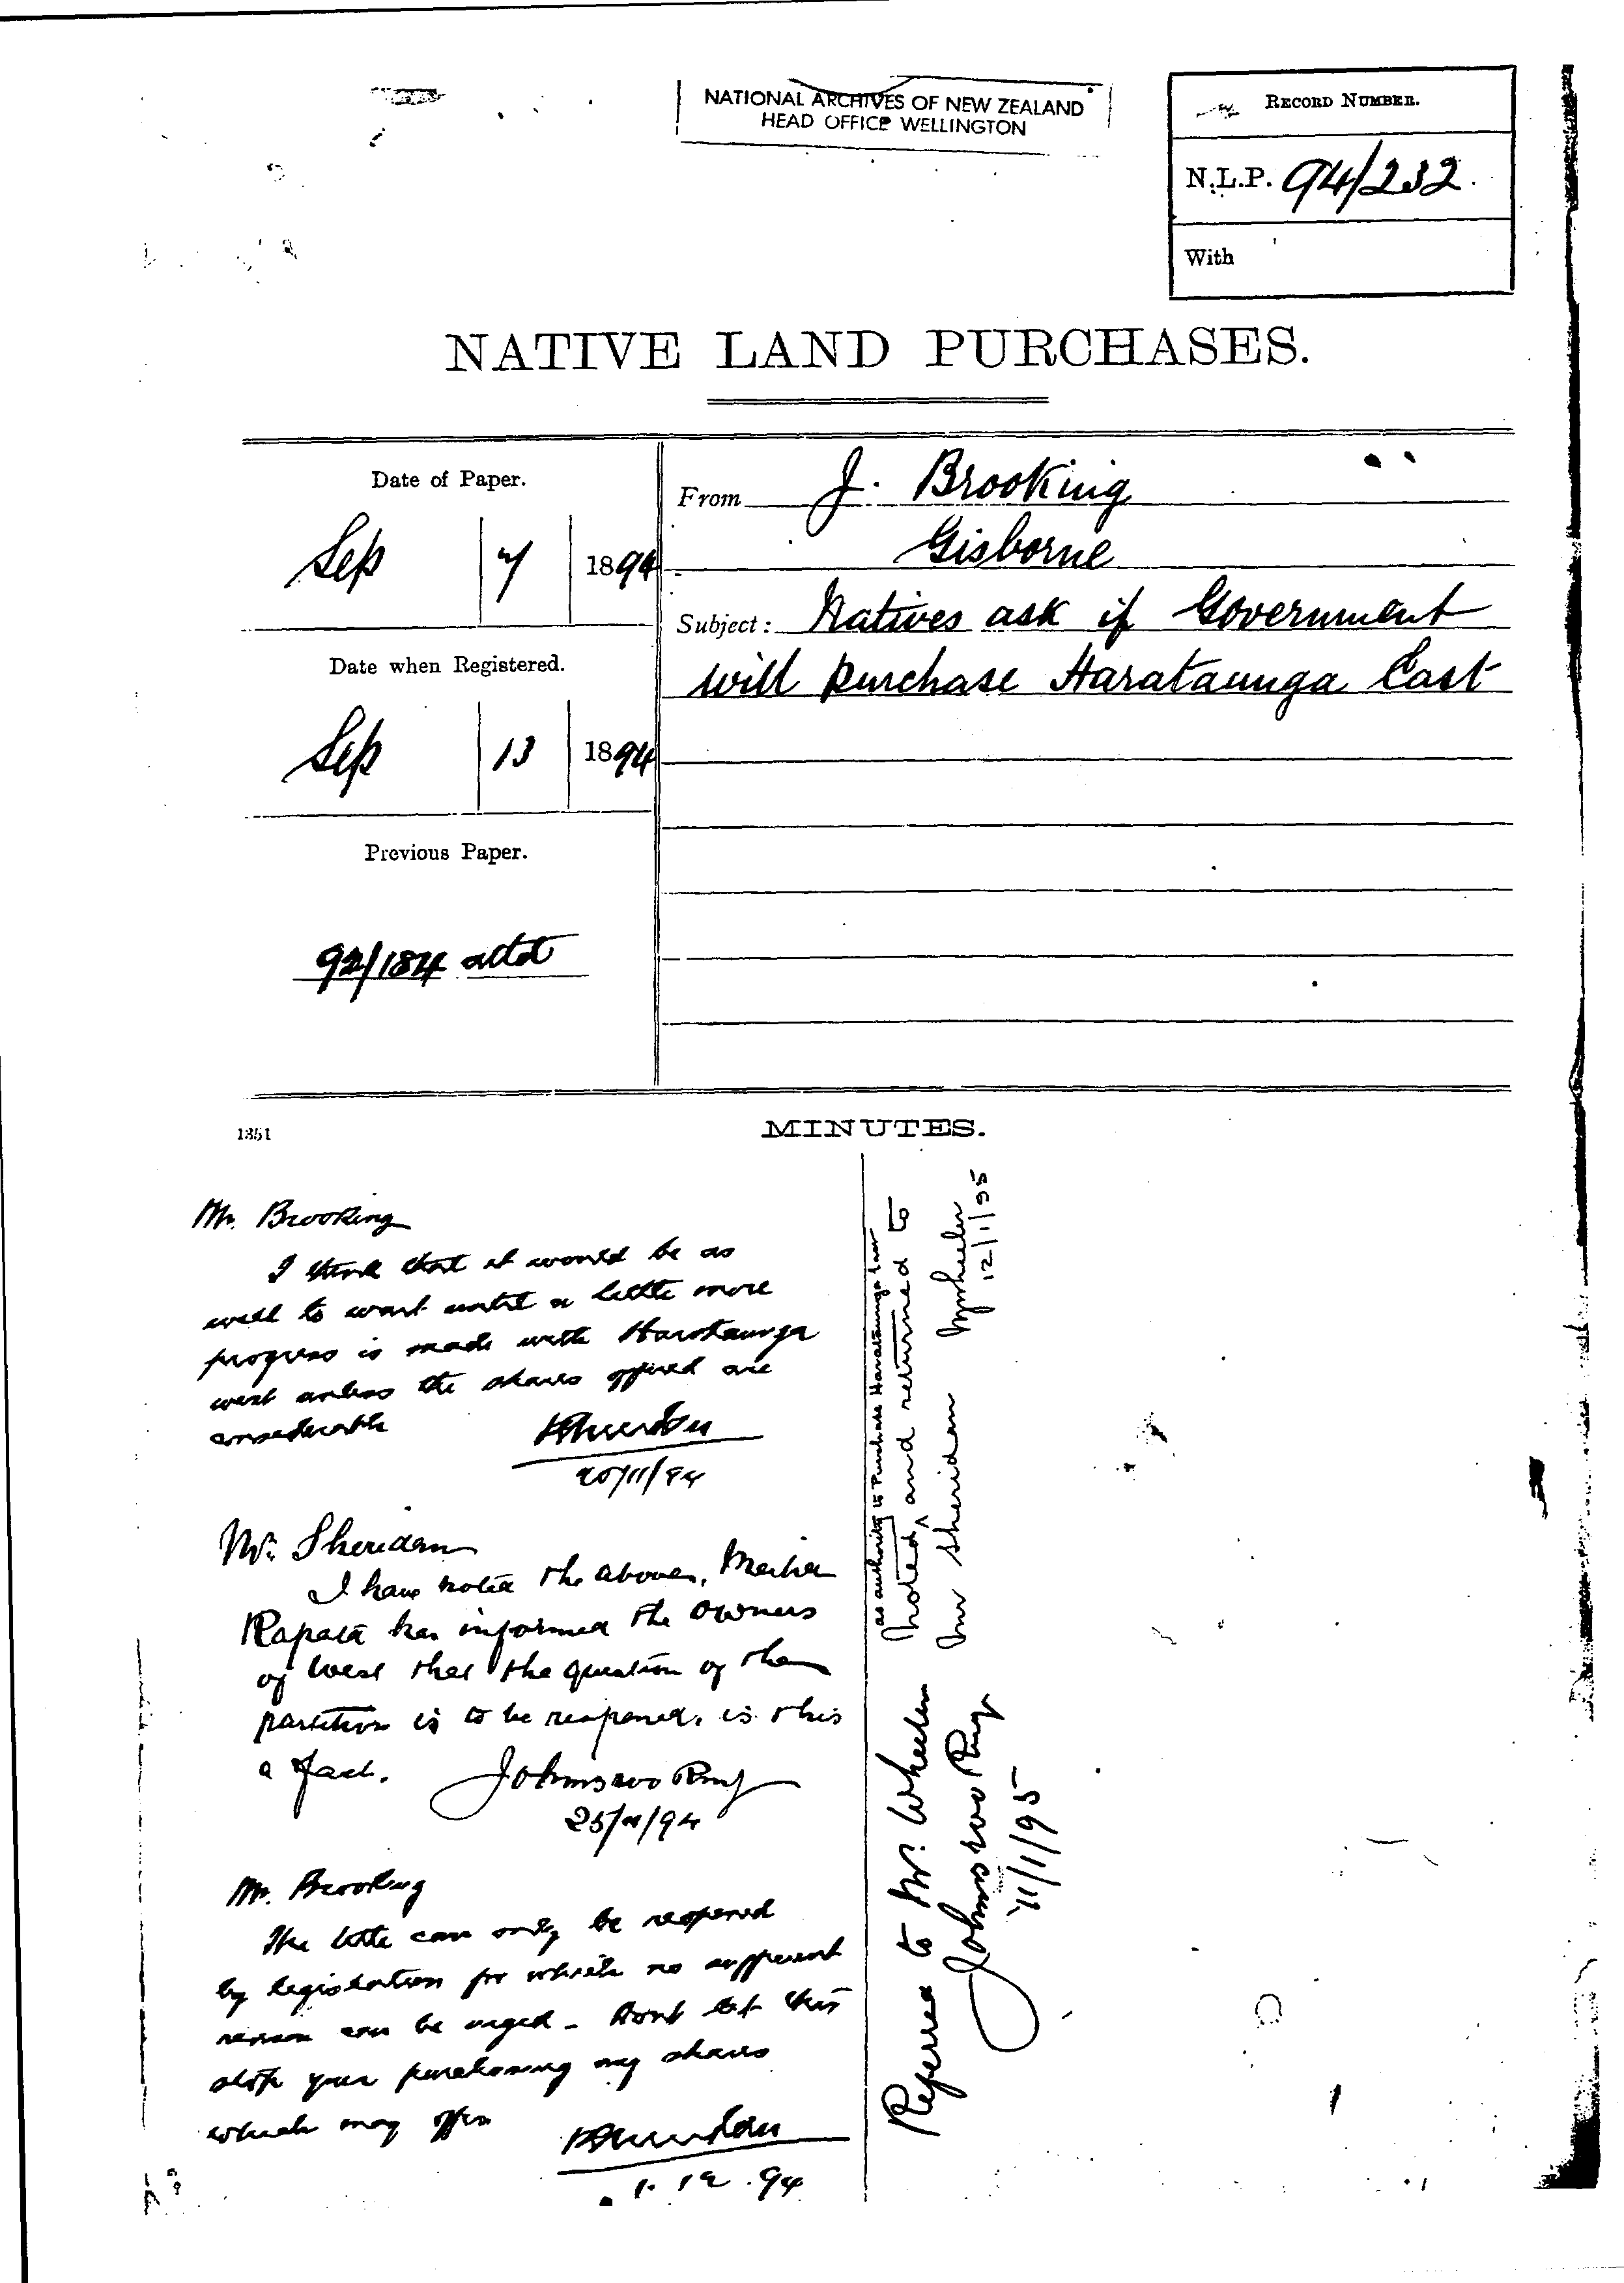 NATIONAL ARCHIVES OF NEW ZEALAND
HEAD OFFICE WELLINGTON
RECORD NUMBER.
N.L.P. 94/232.
With
NATIVE LAND PURCHASES.
Date of Paper.
Sep 7 1894
Date when Registered.
Sep 13 1894
Previous Paper.
92/184 attd
From J. Brooking
Gisborne
Subject: Natives ask if Government
will purchase Harataunga East
1351
MINUTES.
Mr. Brooking
I think that it would be as
well to wait until a little more
progress is made with Harataunga
west unless the shares offered are
considerable
PSheridan
20/11/94
Mr. Sheridan
I have noted the above,
Rapata has informed the owners
of West that the question of the
partition is to be reopened, is this
a fact.
25/11/94
Mr. Brooking
The title can only be reopened
by legislation for which no sufficient
reason can be urged - Dont let this
stop your purchasing any shares
which may offer
PSheridan
1.12.94
Referred to Mr. Wheeler
11/1/95
as authority to Purchase Harataunga East
Noted, ^ and returned to
Mr Sheridan
Wheeler
12/1/95